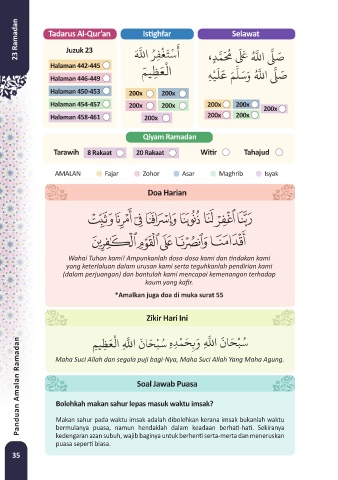 23 Ramadan
Tadarus Al-Qur'an
Istighfar
Selawat
Juzuk 23
Halaman 442-445
Halaman 446-449
Halaman 450-453
Halaman 454-457
Halaman 458-461
أَسْتَغْفِرُ اللَّهَ
الْعَظِيمَ
200x 200x
200x 200x
200x
صَلَّى اللهُ عَلَى مُحَمَّدٍ،
صَلَّى اللهُ وَسَلَّمَ عَلَيْهِ
200x 200x
200x
200x 200x
Qiyam Ramadan
Tarawih 8 Rakaat 20 Rakaat Witir Tahajud
AMALAN Fajar Zohor Asar Maghrib Isyak
Doa Harian
رَبَّنَا ٱغْفِرْ لَنَا ذُنُوبَنَا وَإِسْرَافَنَا فِىٓ أَمْرِنَا وَثَبِّتْ
أَقْدَامَنَا وَٱنصُرْنَا عَلَى ٱلْقَوْمِ ٱلْكَـٰفِرِينَ
Wahai Tuhan kami! Ampunkanlah dosa-dosa kami dan tindakan kami
yang keterlaluan dalam urusan kami serta teguhkanlah pendirian kami
(dalam perjuangan) dan bantulah kami mencapai kemenangan terhadap
kaum yang kafir.
*Amalkan juga doa di muka surat 55
Zikir Hari Ini
سُبْحَانَ اللَّهِ وَبِحَمْدِهِ سُبْحَانَ اللَّهِ الْعَظِيمِ
Maha Suci Allah dan segala puji bagi-Nya, Maha Suci Allah Yang Maha Agung.
Soal Jawab Puasa
Bolehkah makan sahur lepas masuk waktu imsak?
Makan sahur pada waktu imsak adalah dibolehkan kerana imsak bukanlah waktu
bermulanya puasa, namun hendaklah dalam keadaan berhati-hati. Sekiranya
kedengaran azan subuh, wajib baginya untuk berhenti serta-merta dan meneruskan
puasa seperti biasa.
Panduan Amalan Ramadan
35